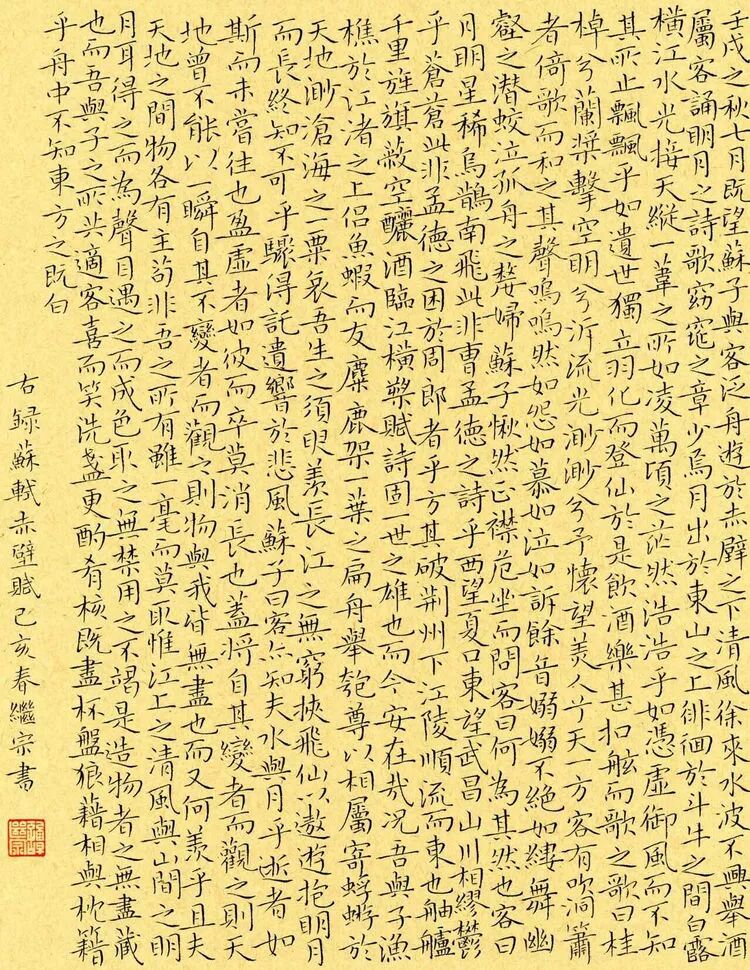 壬戌之秋七月既望蘇子與客泛舟遊於赤壁之下清風徐來水波不興舉酒
屬客誦明月之詩歌窈窕之章少焉月出於東山之上徘徊於斗牛之間白露
橫江水光接天縱一葦之所如凌萬頃之茫然浩浩乎如憑虛御風而不知
其所止飄飄乎如遺世獨立羽化而登仙於是飲酒樂甚扣舷而歌之歌曰桂
棹兮蘭槳擊空明兮泝流光渺渺兮予懷望美人兮天一方客有吹洞簫
者倚歌而和之其聲嗚嗚然如怨如慕如泣如訴餘音嫋嫋不絕如縷舞幽
壑之潛蛟泣孤舟之嫠婦蘇子愀然正襟危坐而問客曰何為其然也客曰
月明星稀烏鵲南飛此非曹孟德之詩乎西望夏口東望武昌山川相繆鬱
乎蒼蒼此非孟德之困於周郎者乎方其破荊州下江陵順流而東也舳艫
千里旌旗蔽空釃酒臨江橫槊賦詩固一世之雄也而今安在哉況吾與子漁
樵於江渚之上侶魚蝦而友麋鹿架一葉之扁舟舉匏尊以相屬寄蜉蝣於
天地渺滄海之一粟哀吾生之須臾羨長江之無窮挾飛仙以遨遊抱明月
而長終知不可乎驟得託遺響於悲風蘇子曰客亦知夫水與月乎逝者如
斯而未嘗往也盈虛者如彼而卒莫消長也蓋將自其變者而觀之則天
地曾不能以一瞬自其不變者而觀之則物與我皆無盡也而又何羨乎且夫
天地之間物各有主苟非吾之所有雖一毫而莫取惟江上之清風與山間之明
月耳得之而為聲目遇之而成色取之無禁用之不竭是造物者之無盡藏
也而吾與子之所共適客喜而笑洗盞更酌肴核既盡杯盤狼藉相與枕籍
乎舟中不知東方之既白
右錄蘇軾赤壁賦己亥春繼宗書